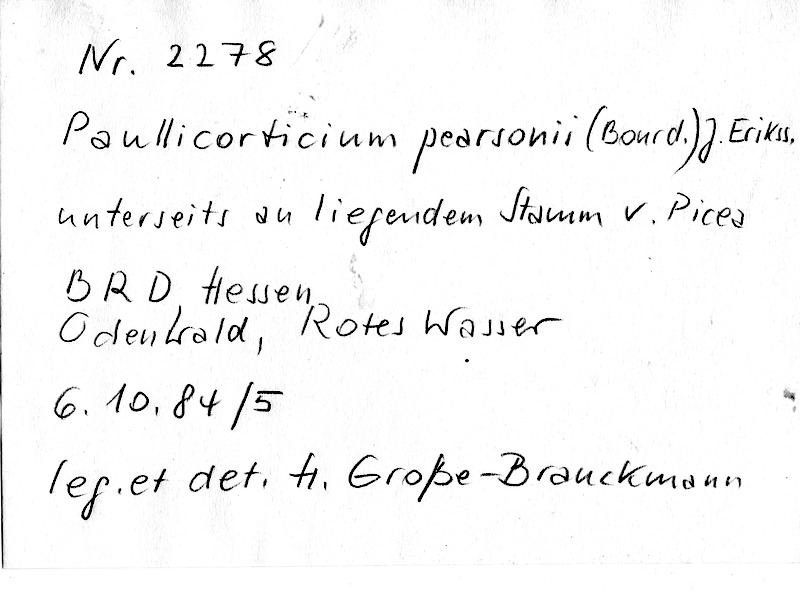 Nr. 2278
Paullicorticium pearsonii (Bourd.) J. Erikss.
unterseits an liegendem Stamm v. Picea
BRD, Hessen,
Odenwald, Rotes Wasser
6. 10. 84/5
leg. et det. H. Große-Brauckmann